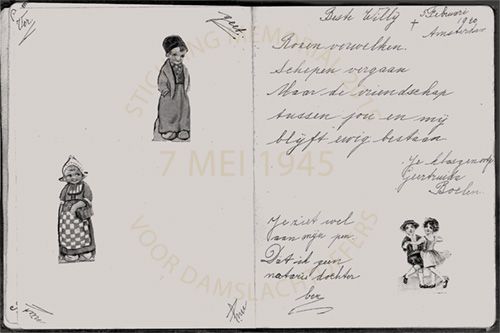 Ver
geet
Beste Willy
5 Februari
1940
Amsterdam
Rozen verwelken.
Schepen vergaan
Maar de vriendschap
tussen jou en mij
blijft eeuwig bestaan
Je
Geertruida
Boelen.
Je ziet wel
aan mijn pen
Dat ik geen
notaris dochter
ben
STICHTING MEMORIAL 2015
7 MEI 1945
VOOR DAMSLACHTOFFERS